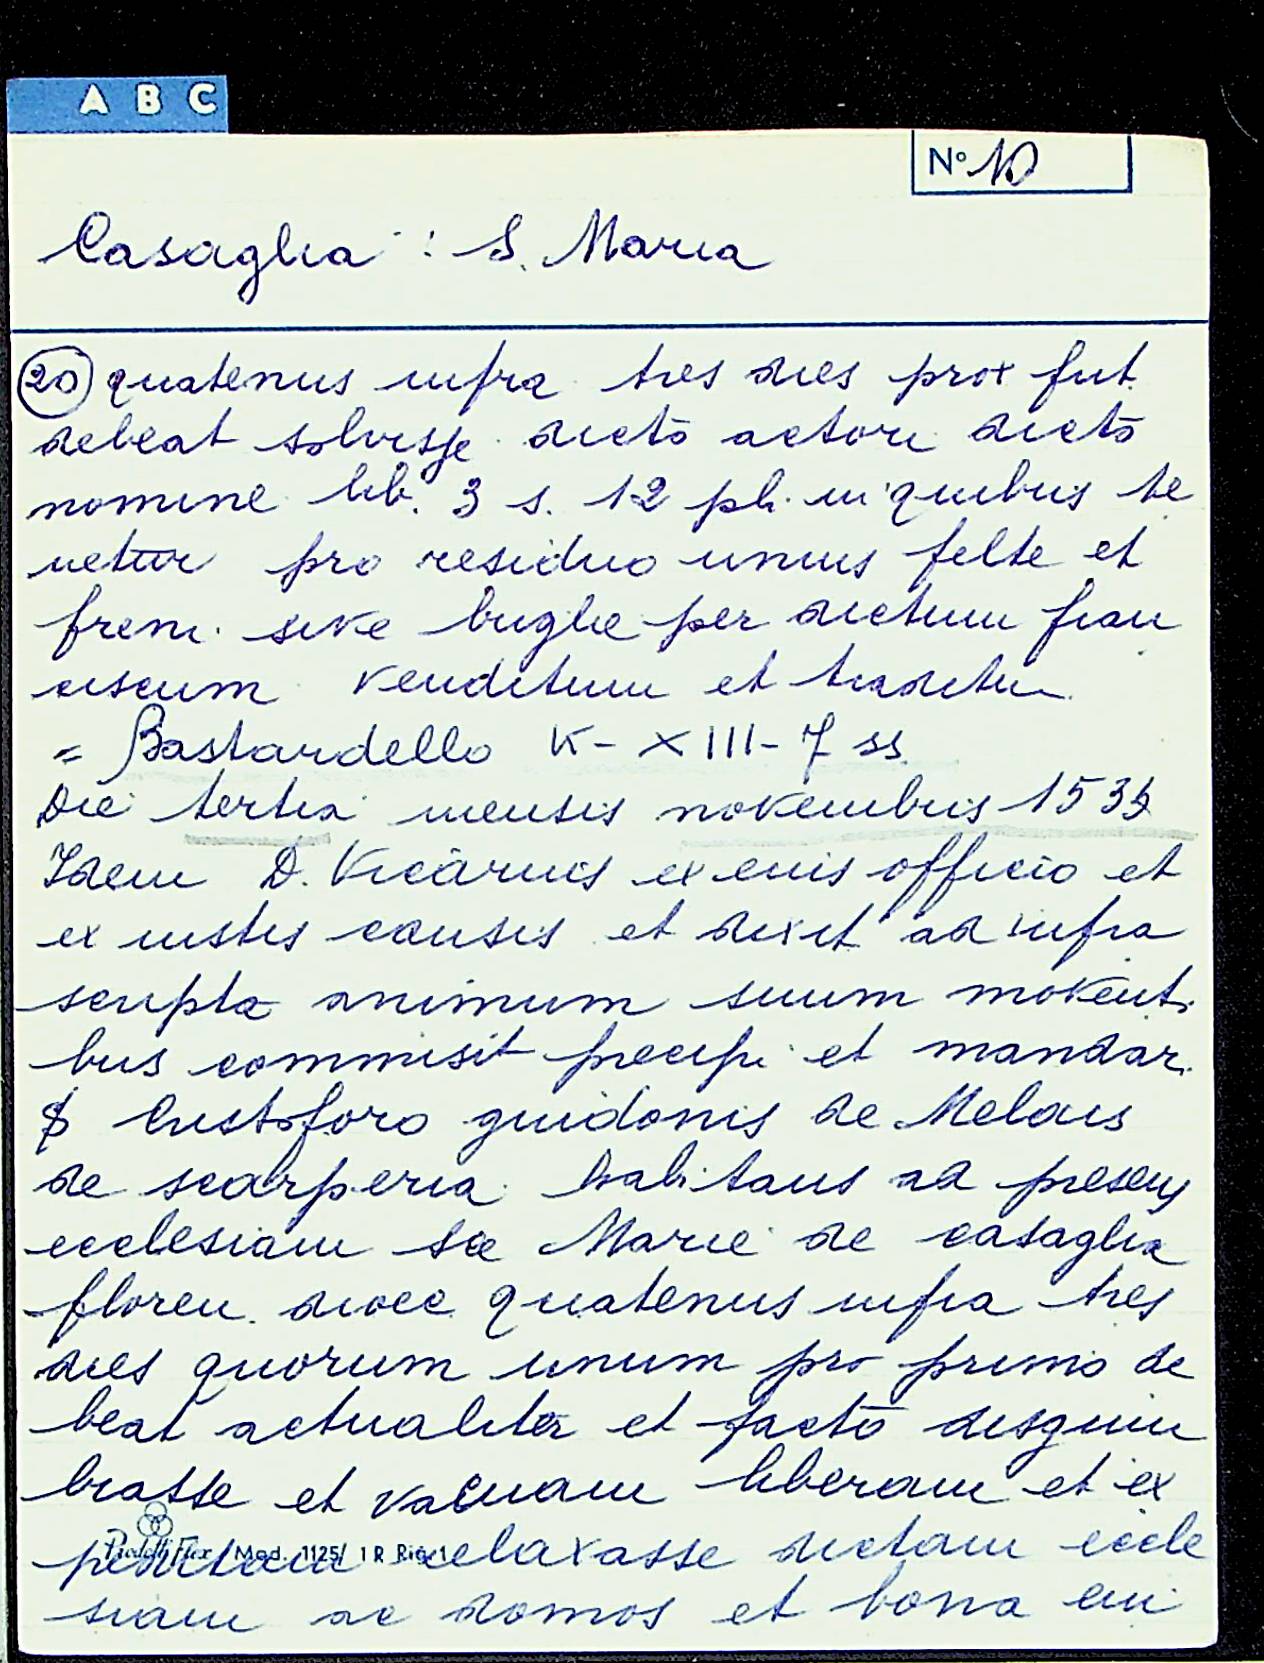 A B C
N° 10
Casaglia : S. Maria
20 quatenus infra tres dies prox fut.
debeat solvisse dicto actori dicto
nomine lib. 3 s. 12 pli. in quibus te
netur pro residuo unius felte et
freni sive briglie per dictum fran
ciscum venditum et traditum
= Bastardello K - XIII - 7 ss.
Die tertia mensis novembris 1535
Idem D. Vicarius ex eius officio et
ex iustis causis et dixit ad infra
scripta animum suum moventi
bus commisit precipi et mandari
Cristoforo guidonis de Melois
de scarperia habitans ad presens
ecclesiam sce Marie de casaglia
floren. dioec quatenus infra tres
dies quorum unum pro primo de
beat actualiter et facto disguin
brasse et vacuam liberam et ex
peditam relaxasse dictam eccle
Mod. 1125/ 1 R Rig. 1
siam ac domos et bona eni